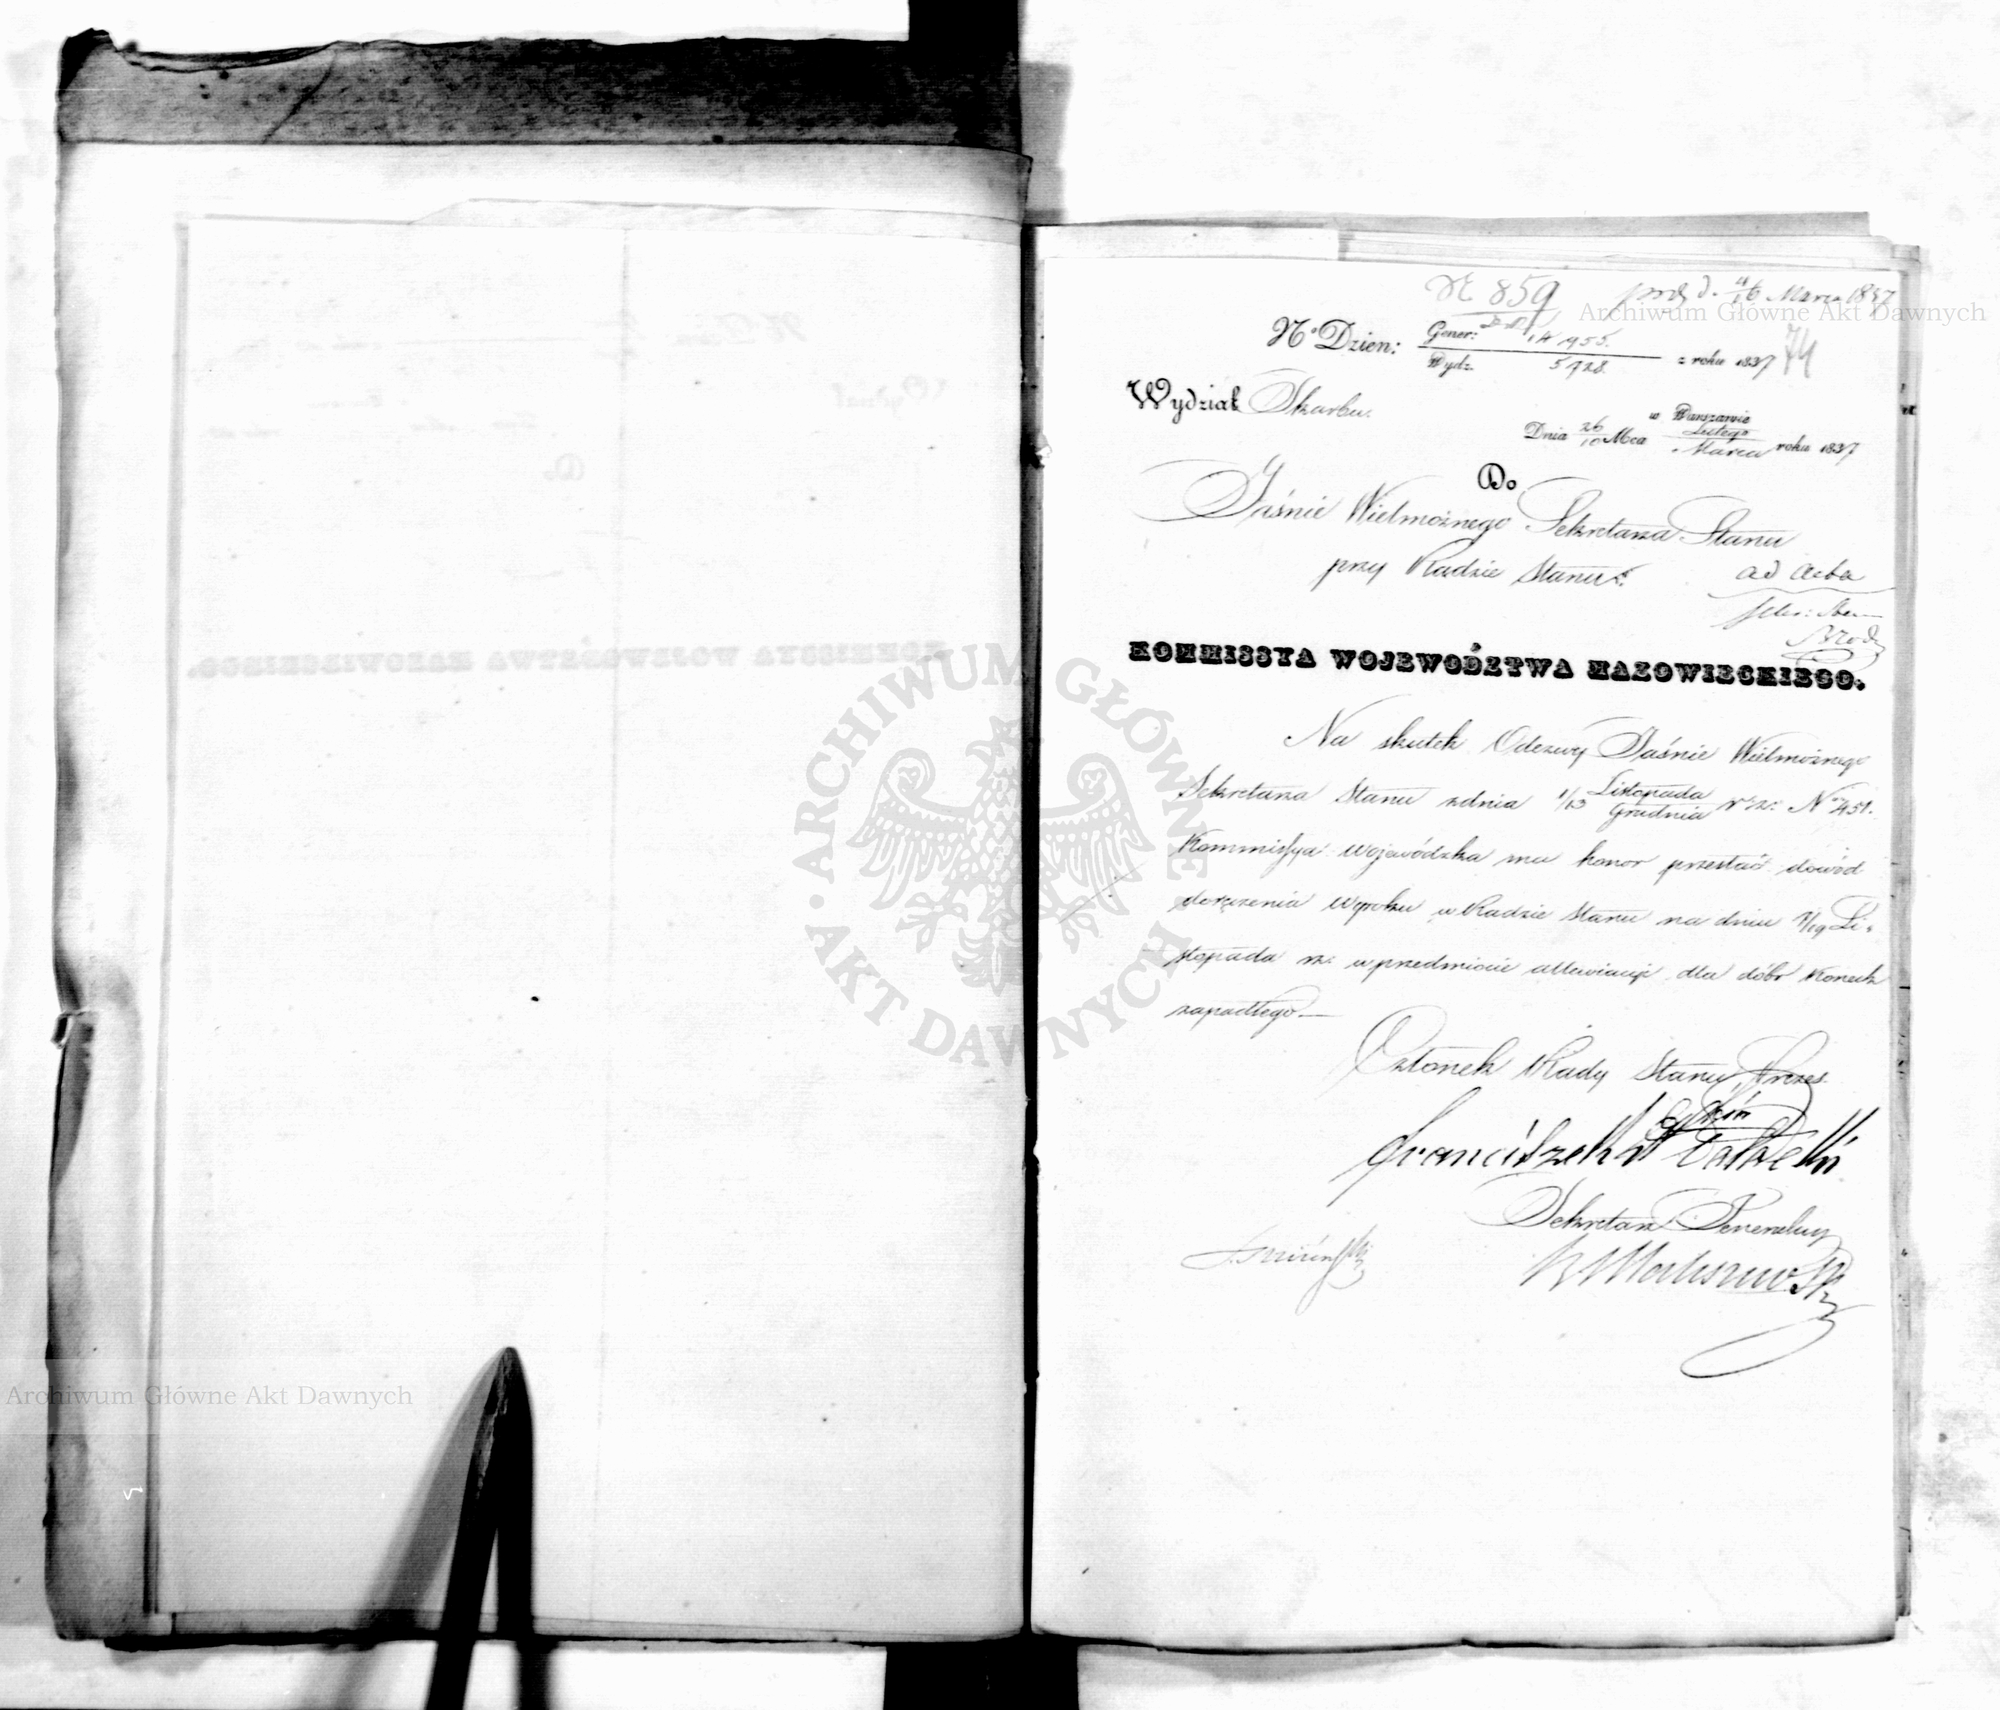 N 859 4/16 Marca 1837
Archiwum Główne Akt Dawnych
Nº Dzien: Gener: 14955.
Wydz. 5728. z roku 1837
74
Wydział Skarbu.
w Warszawie
Dnia 26/10 Mca Lutego/Marca roku 1837
Do
Jaśnie Wielmożnego Sekretarza Stanu
przy Radzie Stanu.
ad acta
KOMMISSYA WOJEWÓDZTWA MAZOWIECKIEGO.
Na skutek Odezwy Jaśnie Wielmożnego
Sekretarza Stanu zdnia 1/13 Listopada/Grudnia r. z. Nº 451.
Kommissya Wojewódzka ma honor przesłać dowód
doręczenia Wyroku w Radzie Stanu na dniu 7/19 Li-
stopada rz. w przedmiocie allewiacyi dla dóbr Koneck
zapadłego.—
Członek Rady Stanu, Prezes
Sekretarz Generalny
ARCHIWUM GŁÓWNE · AKT DAWNYCH ·
Archiwum Główne Akt Dawnych